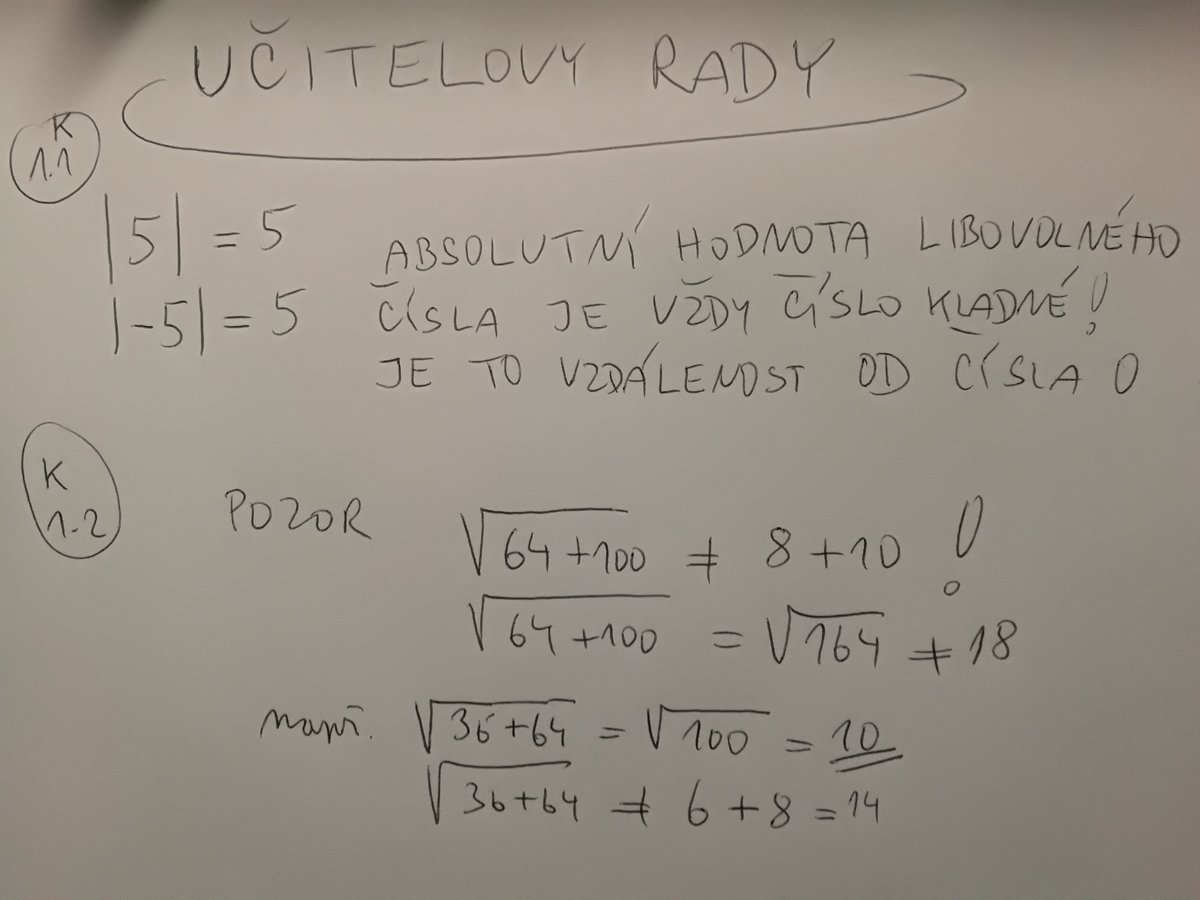 UČITELOVY RADY
K
1.1
|5| = 5
|-5| = 5
ABSOLUTNÍ HODNOTA LIBOVOLNÉHO
ČÍSLA JE VŽDY ČÍSLO KLADNÉ!
JE TO VZDÁLENOST OD ČÍSLA 0
K
1.2
POZOR
√64+100 ≠ 8+10 !
√64+100 = √164 ≠ 18
např. √36+64 = √100 = 10
√36+64 ≠ 6+8 = 14